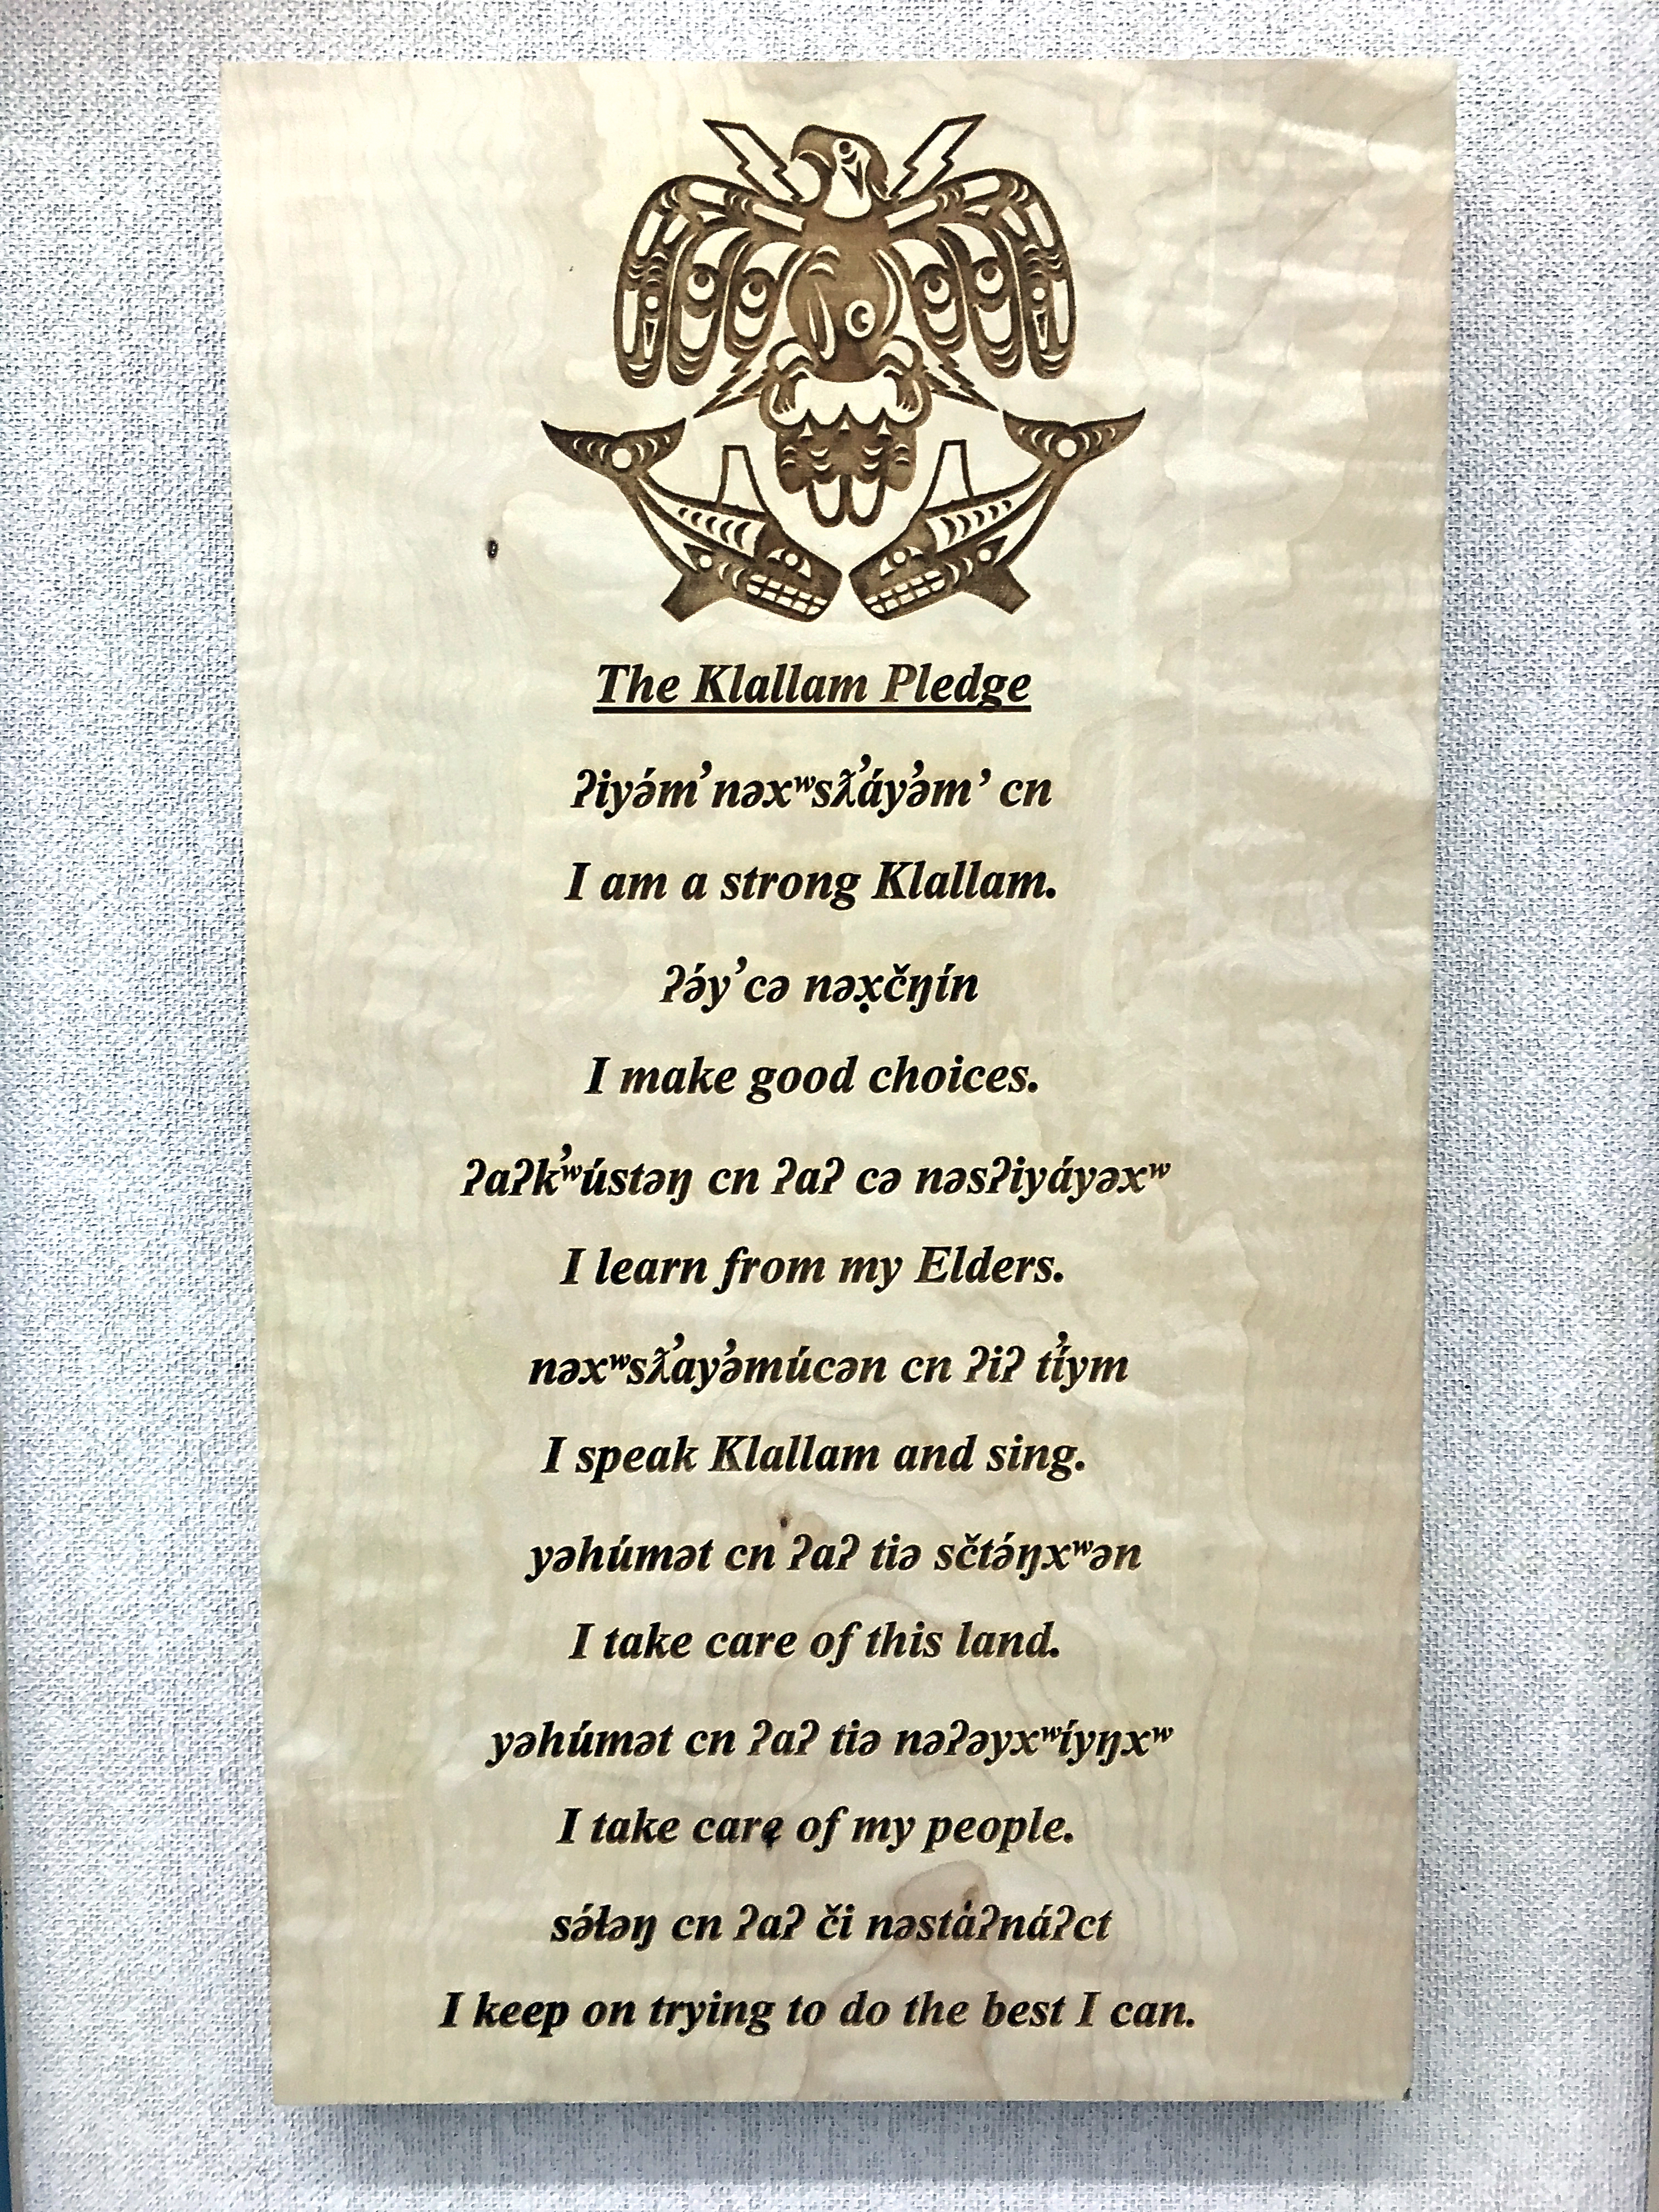 The Klallam Pledge
ʔiyə́m̓ nəxʷsƛ̓áy̓əm̓ cn
I am a strong Klallam.
ʔə́y̓ cə nəx̣čŋín
I make good choices.
ʔaʔk̓ʷústəŋ cn ʔaʔ cə nəsʔiyáyəxʷ
I learn from my Elders.
nəxʷsƛ̓ay̓əmúcən cn ʔiʔ t̓íym
I speak Klallam and sing.
yəhúmət cn ʔaʔ tiə sčtə́ŋxʷən
I take care of this land.
yəhúmət cn ʔaʔ tiə nəʔəyxʷíyŋxʷ
I take care of my people.
sə́ɫəŋ cn ʔaʔ či nəstáʔnáʔct
I keep on trying to do the best I can.